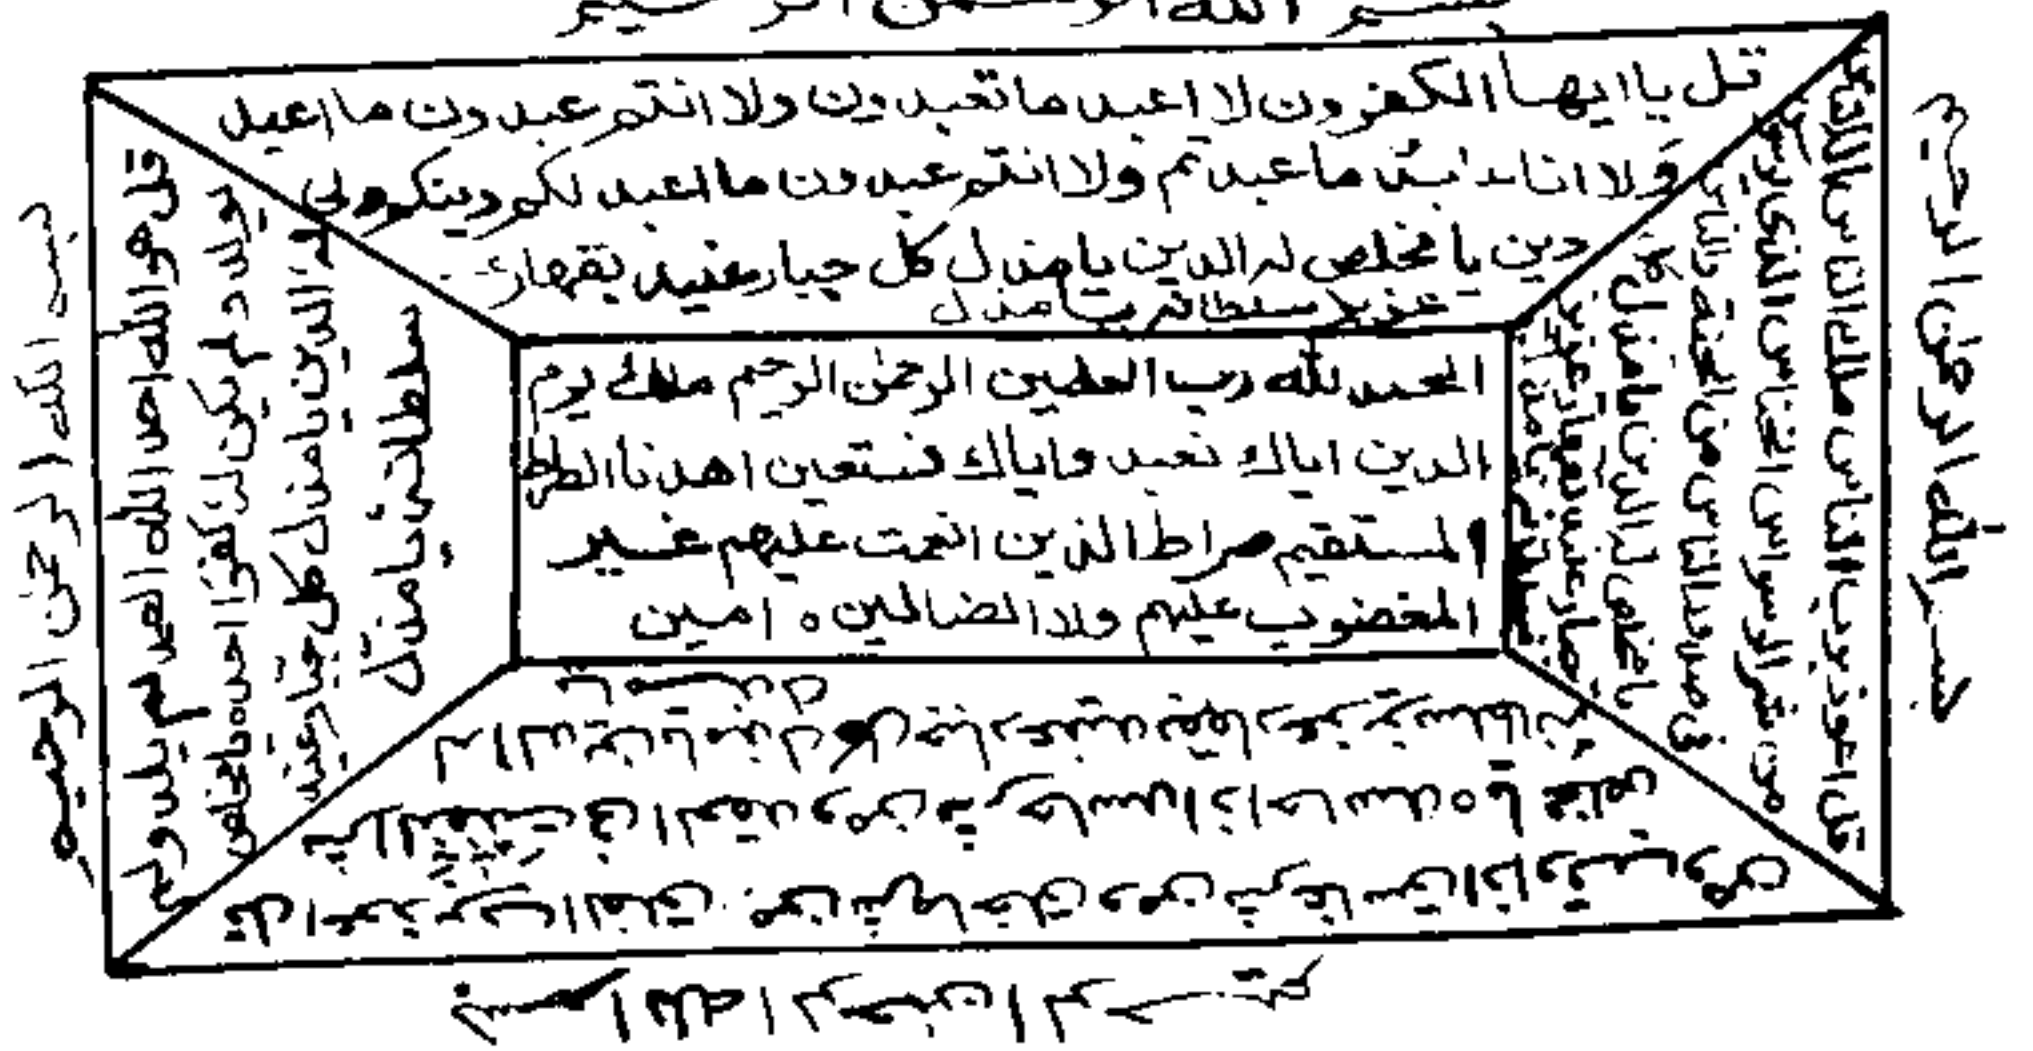 بسم الله الرحمن الرحيم
قل يا ايها الكفرون لا اعبد ما تعبدون ولا انتم عبدون ما اعبد
ولا انا عابد ما عبدتم ولا انتم عبدون ما اعبد لكم دينكم ولي
دين يا مخلص له الدين يا مذل كل جبار عنيد بقهار
عزيز سلطانه يا مذل
الحمد لله رب العلمين الرحمن الرحيم ملك يوم
الدين اياك نعبد واياك نستعين اهدنا الصراط
المستقيم صراط الذين انعمت عليهم غير
المغضوب عليهم ولا الضالين ٥ امين
بسم الله الرحمن الرحيم
قل اعوذ برب الناس ملك الناس اله
من شر الوسواس الخناس الذي يوسوس
في صدور الناس من الجنة والناس
يا مخلص له الدين يا مذل كل
جبار عنيد بقهار عزيز
سلطانه يا مذل
بسم الله الرحمن الرحيم
قل اعوذ برب الفلق من شر ما خلق ومن شر غاسق اذا وقب ومن
شر النفثت في العقد ومن شر حاسد اذا حسد ٥
بسم الله الرحمن الرحيم
قل هو الله احد الله الصمد لم يلد ولم
يولد ولم يكن له كفوا احد ٥ يا مخلص
له الدين يا مذل كل جبار عنيد
سلطانه يا مذل